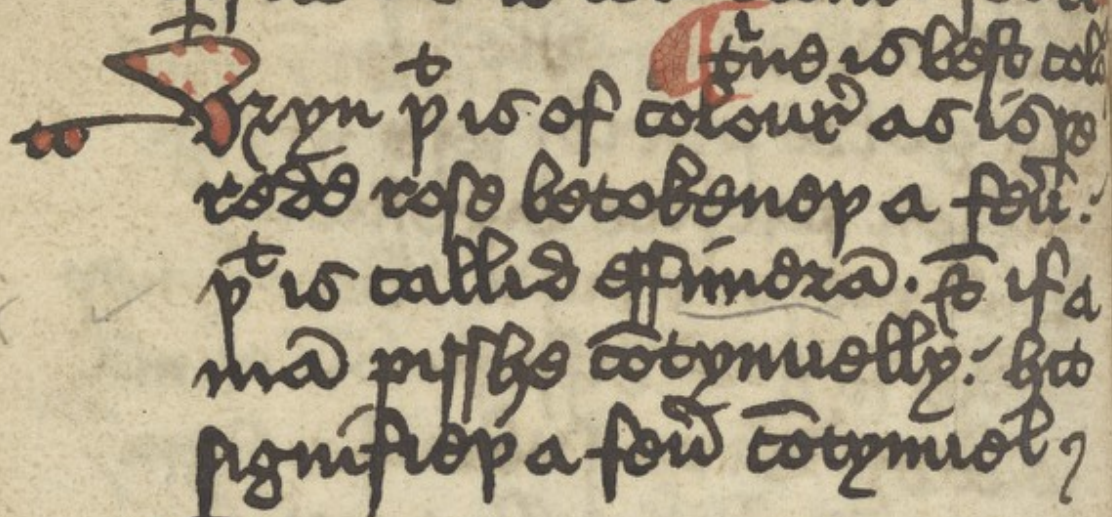 t'ne is best colo
Vryn þᵗ is of colour as is þe
rede rose betokeneþ a feū:
þᵗ is callid effimerā. ⁊ if a
mā pisshe cōtynuelly: hit
signifieþ a feū cōtynuel